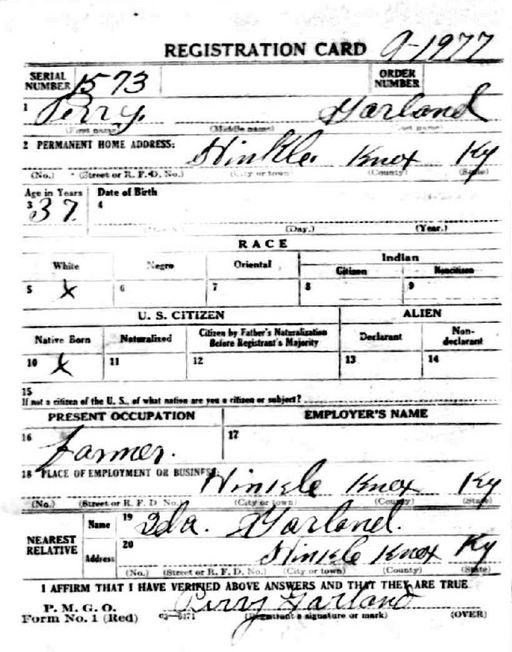 REGISTRATION CARD A-1977
SERIAL NUMBER 1573 ORDER NUMBER
1 Perry Garland
(First name) (Middle name) (Last name)
2 PERMANENT HOME ADDRESS: Hinkle Knox Ky
(No.) (Street or R. F. D. No.) (City or town) (County) (State)
Age in Years Date of Birth
3 37 4
(Day.) (Year.)
RACE
White Negro Oriental Indian
Citizen Noncitizen
5 X 6 7 8 9
U. S. CITIZEN ALIEN
Native Born Naturalized Citizen by Father's Naturalization Before Registrant's Majority Declarant Non-declarant
10 X 11 12 13 14
15
If not a citizen of the U. S., of what nation are you a citizen or subject?
PRESENT OCCUPATION EMPLOYER'S NAME
16 Farmer. 17
18 PLACE OF EMPLOYMENT OR BUSINESS: Hinkle Knox Ky
(No.) (Street or R. F. D. No.) (City or town) (County) (State)
NEAREST RELATIVE Name 19 Ida. Garland.
Address 20 Hinkle Knox Ky
(No.) (Street or R. F. D. No.) (City or town) (County) (State)
I AFFIRM THAT I HAVE VERIFIED ABOVE ANSWERS AND THAT THEY ARE TRUE
P. M. G. O. Perry Garland
Form No. 1 (Red) 03-6171 (Registrant's signature or mark) (OVER)